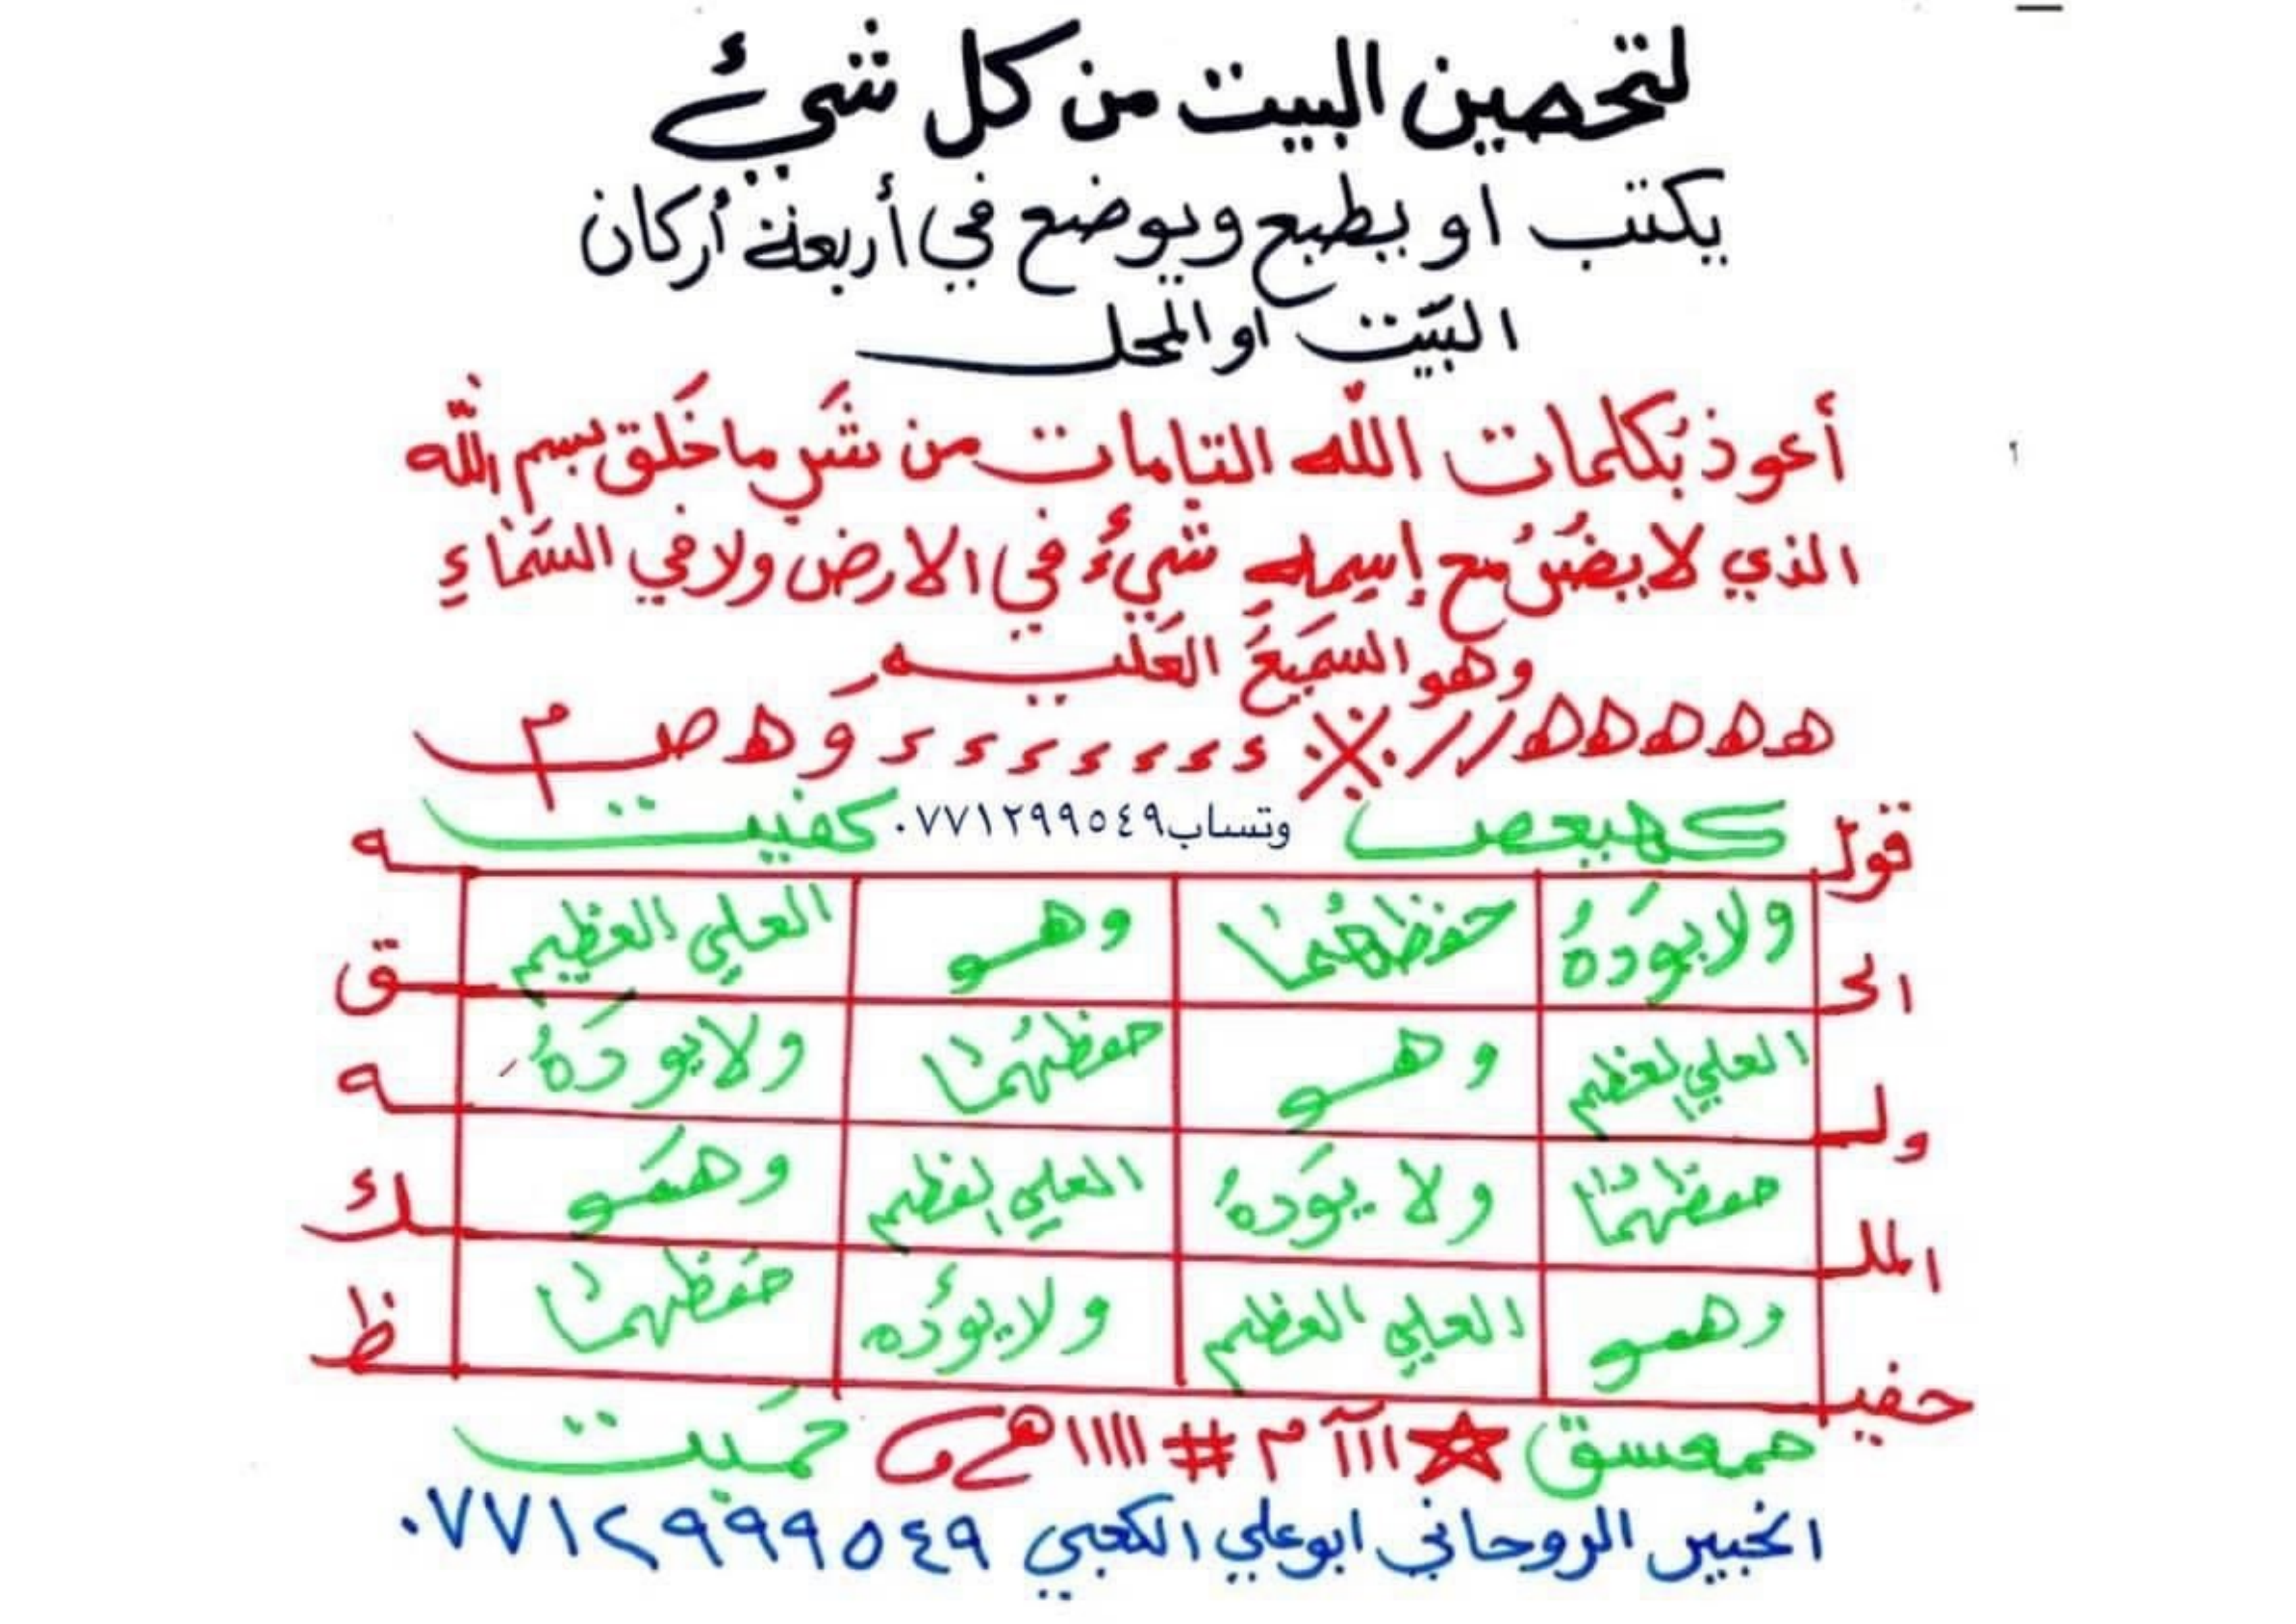 لتحصين البيت من كل شيئ
يكتب او يطبع ويوضع في أربعة أركان
البَيت او المحل
أعوذ بكلمات الله التامات من شَر ما خَلق بسم الله
الذي لا يضُرُ مع إسمه شيءُ في الارض ولا في السَماءِ
وهو السَميعَ العَليم
ههههه // ※ ء ء ء ء ء ء ء و ه ص م
كهيعص وتساب٠٧٧١٢٩٩٥٤٩ كفيت
قوله
ولا يؤدهُ حفظهُما وهو العلي العظيم
الحق
العلي العظيم وهو حفظهُما ولا يؤَدهُ
وله
حفظهُما ولا يؤَدهُ العلي العظيم وهَو
الملك
وهو العلي العظيم ولا يؤُده حفَظهما
حفيظ
حمعسق ☆ ااآ م # ااااا هـ و حمَيت
الخبير الروحاني ابو علي الكعبي ٠٧٧١٢٩٩٩٥٤٩